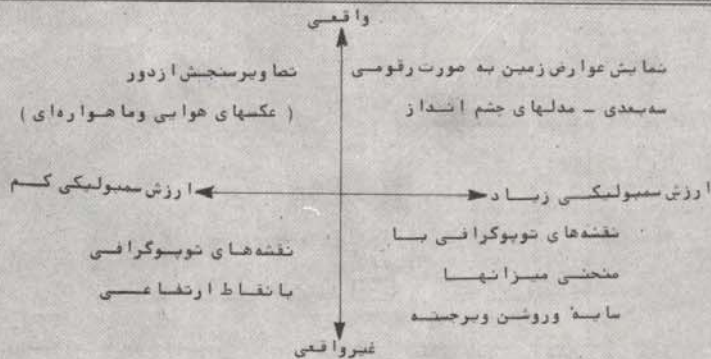 واقعی
نمایش عوارض زمین به صورت رقومی
سه‌بعدی – مدلهای چشم انداز
تصاویر سنجش ازدور
( عکسهای هوایی وماهواره‌ای )
ارزش سمبولیکی زیاد
ارزش سمبولیکی کم
نقشه‌های توپوگرافی با
منحنی میزانها
سایه وروشن وبرجسته
نقشه‌های توپوگرافی
بانقاط ارتفاعی
غیرواقعی